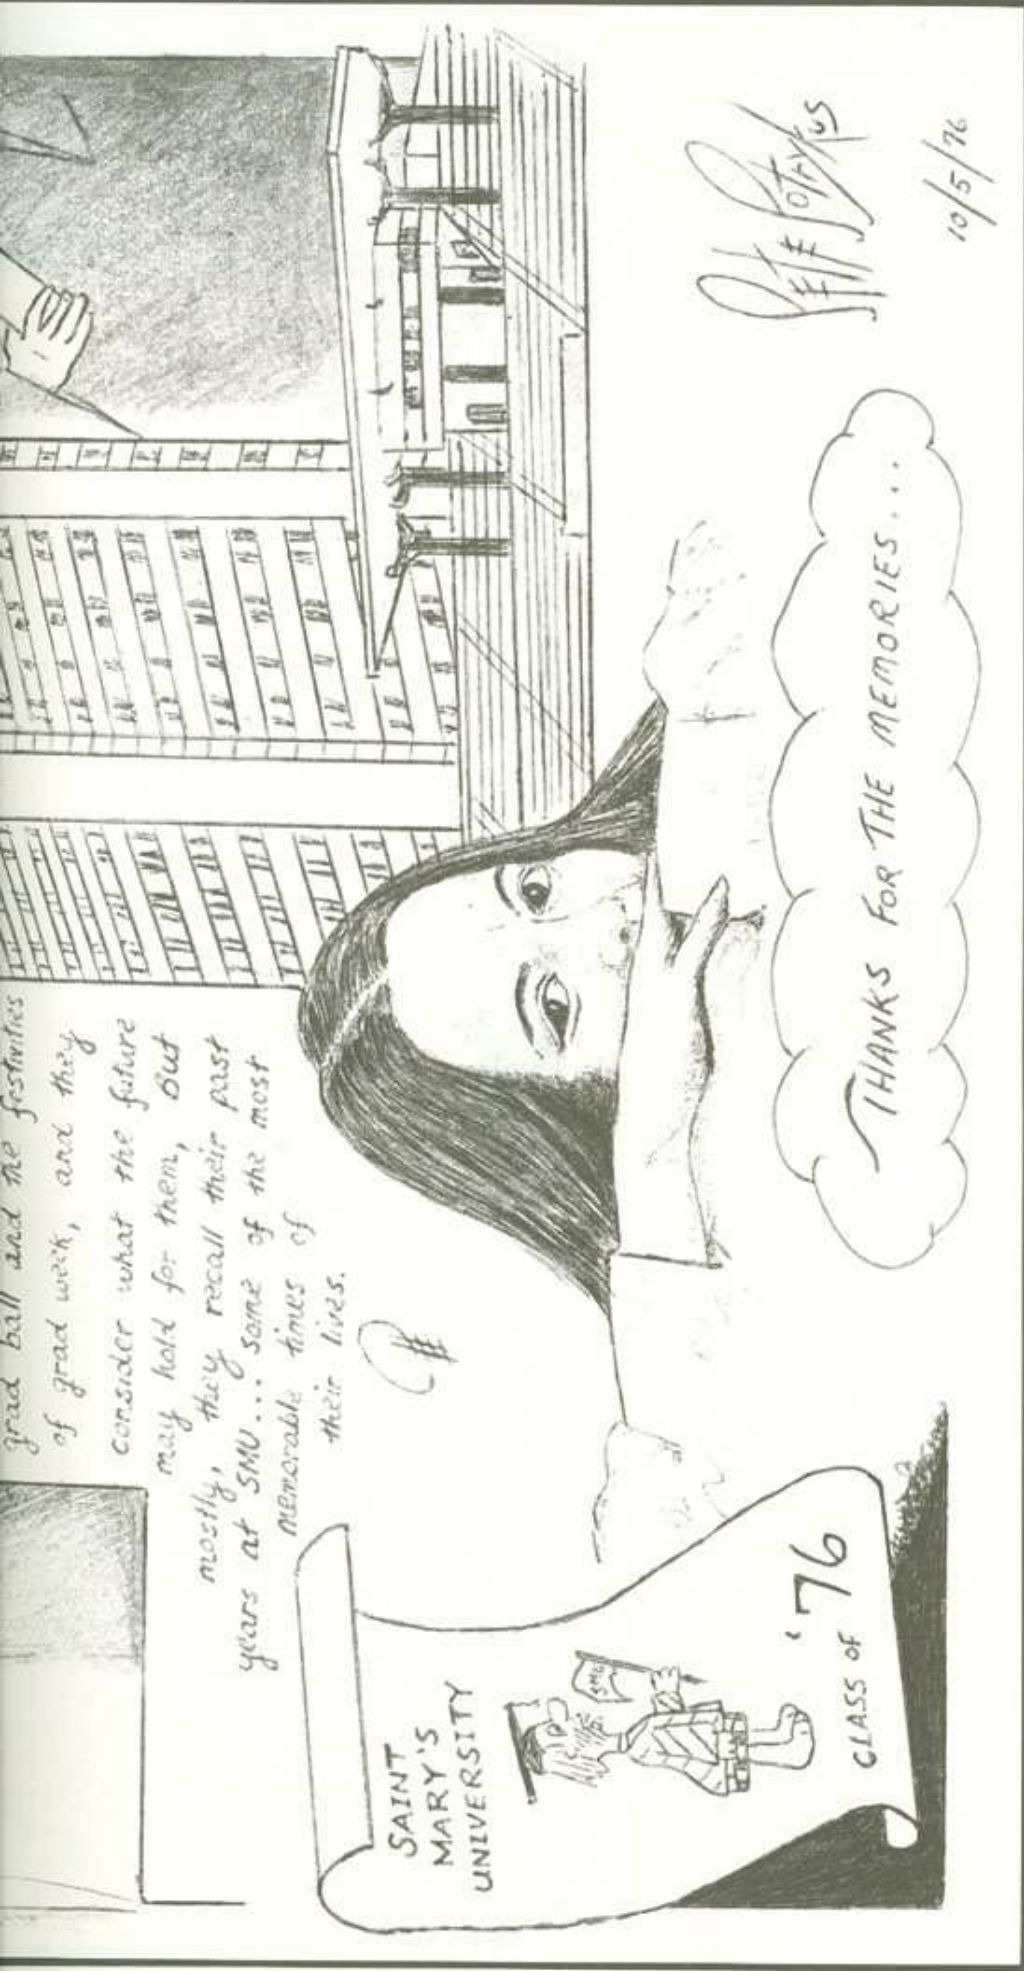 grad ball and the festivities
of grad week, and they
consider what the future
may hold for them, but
mostly, they recall their past
years at SMU... some of the most
memorable times of
their lives.
SAINT
MARY'S
UNIVERSITY
SMU
CLASS OF '76
THANKS FOR THE MEMORIES....
10/5/76